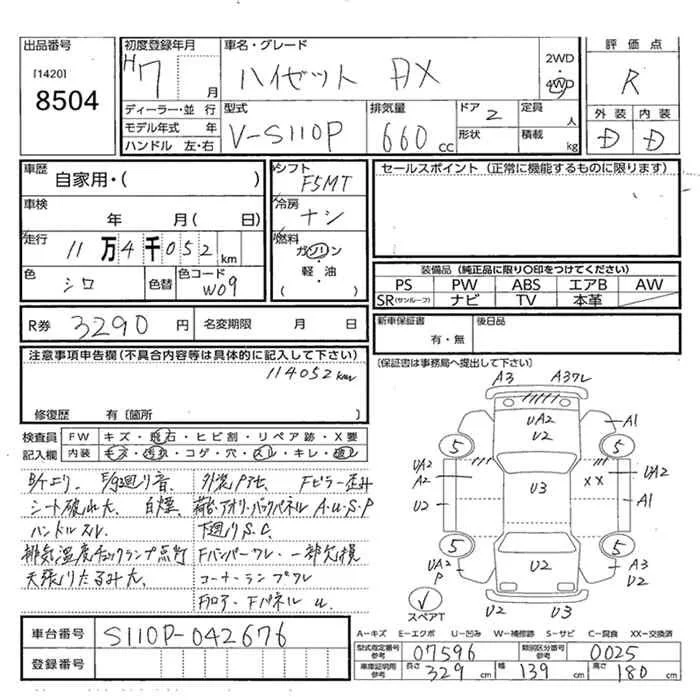 出品番号
[1420]
8504
初度登録年月
H7 月
ディーラー・並 行
モデル年式 年
ハンドル 左・右
車名・グレード
ハイゼット AX
2WD
・
4WD
評 価 点
R
型式
V-S110P
排気量
660 cc
ドア 2
形状
定員 人
積載 kg
外 装 内 装
D D
車歴
自家用・( )
車検
年 月( 日)
走行
11万4千052km
色
シロ
色替
色コード
W09
シフト
F5MT
冷房
ナシ
燃料
ガソリン
・
軽・油
( )
セールスポイント (正常に機能するものに限ります)
装備品 (純正品に限り○印をつけてください)
PS PW ABS エアB AW
SR(サンルーフ) ナビ TV 本革
R券 3290 円 名変期限 月 日
新車保証書
有・無
後日品
注意事項申告欄(不具合内容等は具体的に記入して下さい)
114052km
修復歴 有〔箇所 〕
〔保証書は事務局へ提出して下さい〕
検査員 FW キズ・飛石・ヒビ割・リペア跡・X要
記入欄 内装 キズ・汚れ・コゲ・穴・スレ・キレ・破レ
シート破れ大 白煙
ハンドルスレ
下廻りS.C.
排気温度チェックランプ点灯
Fバンパーワレ・一部欠損
天張りたるみ大
コーナーランプワレ
Fフロア・Fパネル u.
A3 A3ワレ
UA2
U2
A1
5 5
UA2
A2
U2
U3
XX
UA2
A1
5 5
UA2
P
U2
A3
U2
スペアT
U2 U3
車台番号 S110P-042676
登録番号
A-キズ E-エクボ U-凹み W-補修跡 S-サビ C-腐食 XX-交換済
型式指定番号
参考
07596
類別区分番号
参考
0025
車庫証明用
参考
長さ 329 cm 幅 139 cm 高さ 180 cm